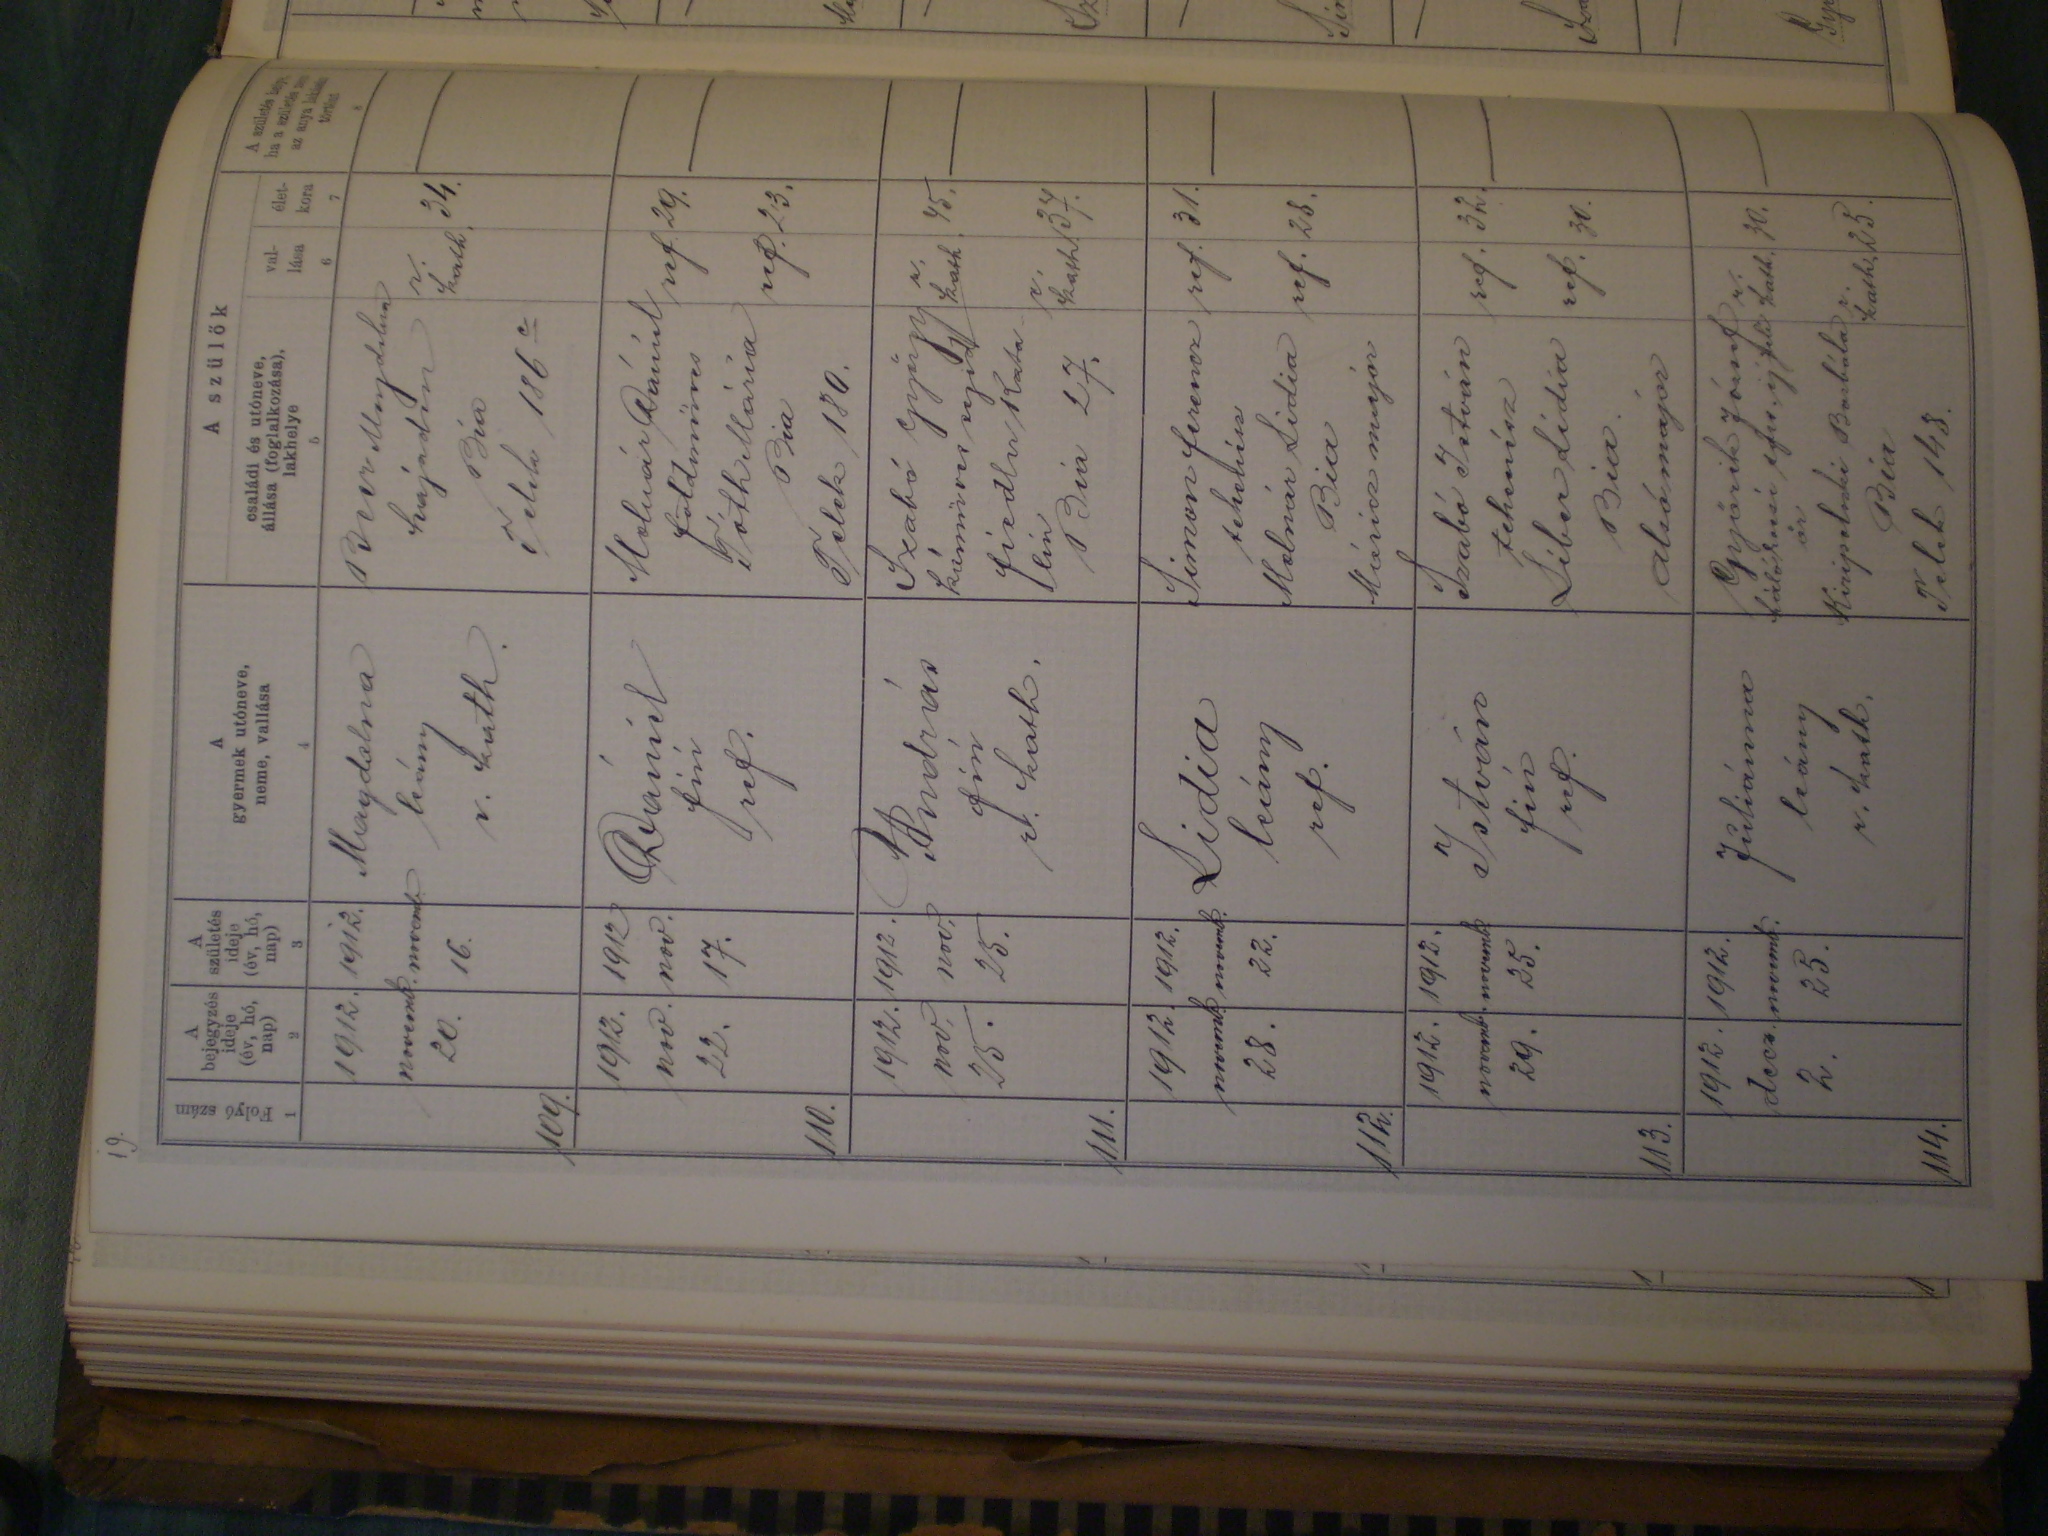 19.
A szülők
Folyó szám
A bejegyzés ideje (év, hó, nap)
A születés ideje (év, hó, nap)
A gyermek utóneve, neme, vallása
családi és utóneve, állása (foglalkozása), lakhelye
vallása
életkora
A születés helye, ha a születés nem az anya lakásán történt
1 2 3 4 5 6 7 8
109.
1912. novemb. 20.
1912. novemb. 16.
Magdolna
leány
r. kath.
Magdolna
Bia
Telek 186 c
r. kath. 34.
110.
1912. nov. 22.
1912 nov. 17.
Dániel
fiú
ref.
Molnár Dániel
földmüves
ref. 29.
Tóth Mária
ref. 23.
Bia
Telek 180.
111.
1912. nov. 25.
1912. nov. 25.
András
fiú
r. kath.
Szabó György
kőmüves
r. kath. 45.
Kata-
lin
r. kath. 37.
Bia 27.
112.
1912. novemb. 28.
1912. novemb. 22.
Lidia
leány
ref.
Simon Ferencz
tehenész
ref. 31.
Molnár Lidia
ref. 28.
Bia
Mária major
113.
1912. novemb. 29.
1912. novemb. 25.
István
fiú
ref.
Szabó István
tehenész
ref. 32.
Líber Lídia
ref. 30.
Bia.
alsómajor
114.
1912. decz. 2.
1912. novemb. 25.
Juliánna
leány
r. kath.
Gyárik József
r. kath. 30.
őr
Borbála
r. kath. 25.
Bia
Telek 148.